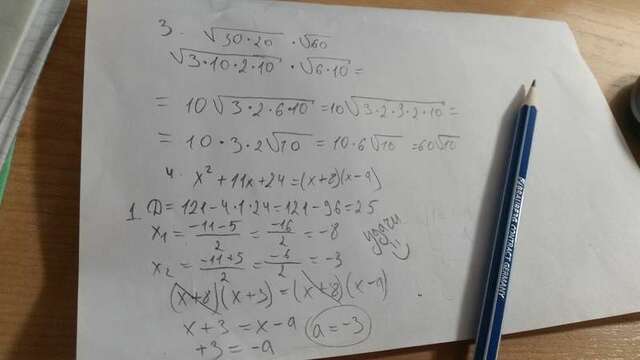 3. √30·20 · √60
√3·10·2·10 · √6·10 =
= 10√3·2·6·10 = 10√3·2·3·2·10 =
= 10·3·2√10 = 10·6√10 = 60√10
4. x² + 11x + 24 = (x+8)(x-a)
1. D = 121 - 4·1·24 = 121 - 96 = 25
x₁ = (-11-5)/2 = -16/2 = -8
x₂ = (-11+5)/2 = -6/2 = -3
удачи
(x+8)(x+3) = (x+8)(x-a)
x+3 = x-a
a = -3
+3 = -a